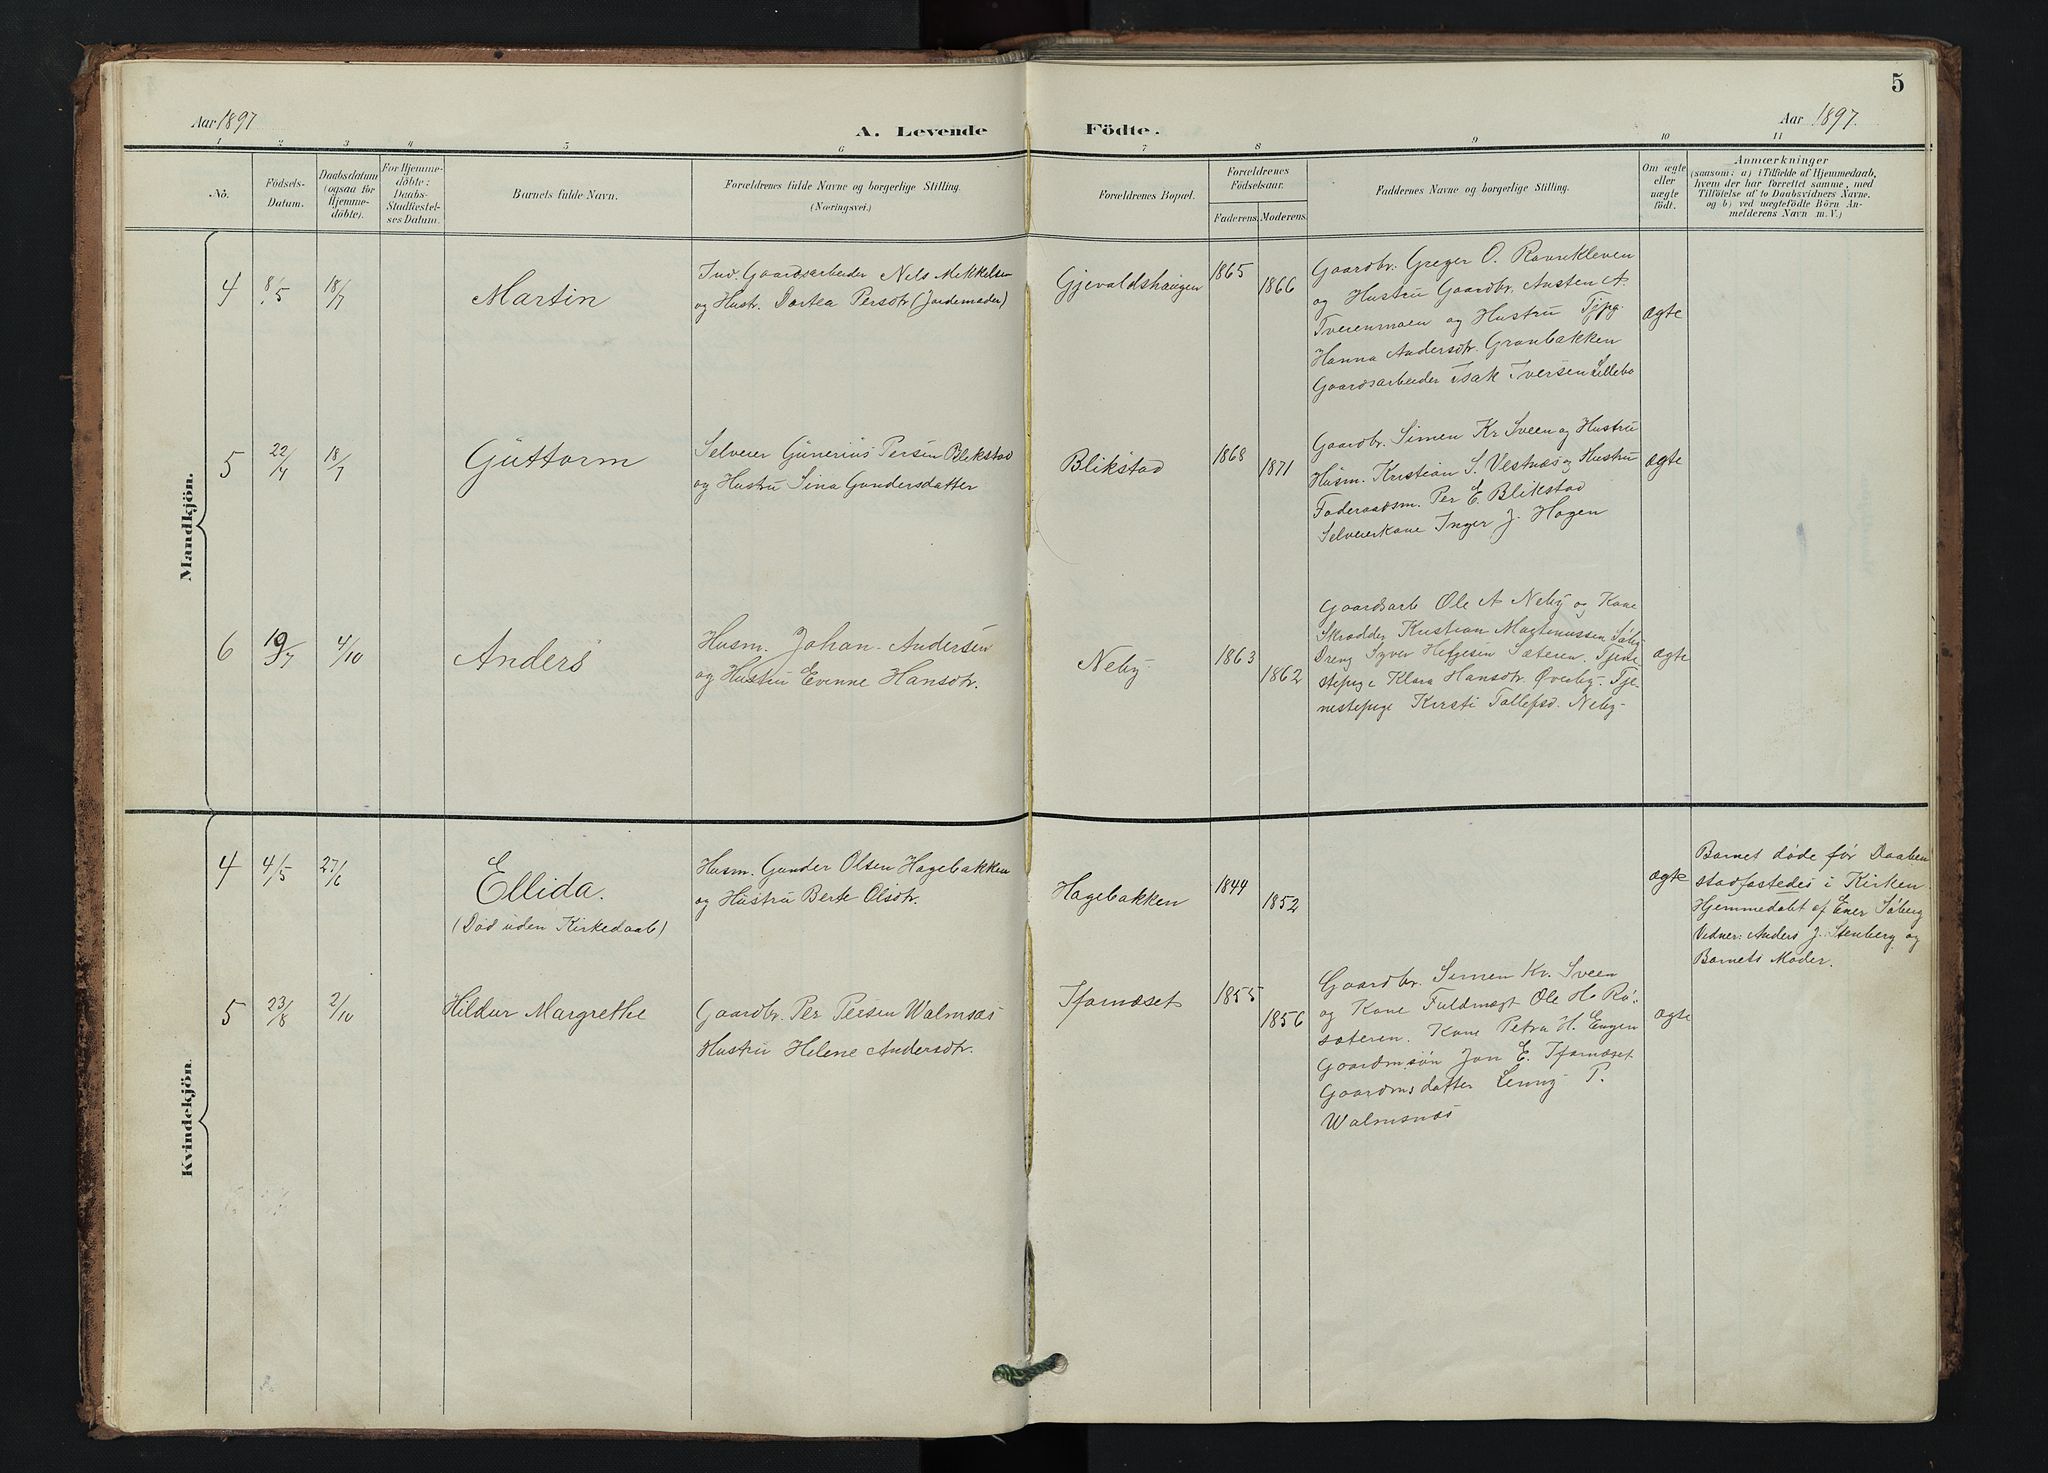 5
Aar 1897
A. Levende Födte.
Aar 1897.
1 2 3 4 5 6 7 8 9 10 11
No.
Födsels-
Datum.
Daabsdatum
(ogsaa for
Hjemme-
döbte).
For Hjemme-
döbte:
Daabs-
Stadfæstel-
ses Datum.
Barnets fulde Navn.
Forældrenes fulde Navne og borgerlige Stilling.
(Næringsvei.)
Forældrenes Bopæl.
Forældrenes
Födselsaar.
Faderens. Moderens.
Faddernes Navne og borgerlige Stilling.
Om ægte
eller
uægte
födt.
Anmærkninger
(saasom: a) i Tilfælde af Hjemmedaab,
hvem der har forrettet samme, med
Tilföielse af to Daabsvidners Navne.
og b) ved uægtefödte Börn An-
melderens Navn m. V.)
Mandkjön.
4
8/5
18/7
Martin
Ind. Gaardsarbeider Nels Mikkelsen
og Hustr. Dortea Persdtr (Jordemoder)
Gjevaldshaugen
1865
1866
Gaardbr. Greger O. Ravnkleven
og Hustru Gaardbr. Austen A.
Tveienmoen og Hustru Tjpg.
Hanna Andersdtr. Granbakken
Gaardsarbeider Isak Iversen Lillebo
ægte
5
22/4
18/7
Guttorm
Selveier Gunerius Persen Blekstad
og Hustru Sina Gundersdatter
Blikstad
1868
1871
Gaardbr. Simen Kr Sveen og Hustru
Husm. Kristian S. Vestnæs og Hustru
Foderaadsm. Per E. Blikstad
Selveierkone Inger J. Hagen
ægte
6
19/7
4/10
Anders
Husm. Johan Andersen
og Hustru Evenne Hansdtr.
Neby
1863
1862
Gaardsarb Ole A Neby og Kone
Skrædder Kristian Magnussen
Dreng Syver Helgesen Sæteren. Tjene-
stepige Klara Hansdtr. Øverby. Tje-
nestepige Kirsti Tollefsd. Neby.
ægte
Kvindekjön.
4
4/5
27/6
Ellida.
(Död uden Kirkedaab)
Husm. Gunder Olsen Hagebakken
og Hustru Berte Olsdtr.
Hagebakken
1844
1852
ægte
Barnet döde før Daaben
stadfæstedes i Kirken.
Hjemmedøbt af Ener Søberg
Vidner: Anders J. Stenberg og
Barnets Moder.
5
23/8
2/10
Hildur Margrethe
Gaardbr. Per Persen Walmsnæs
Hustru Helene Andersdtr.
Ifarnæset
1855
1856
Gaardbr. Simen Kr. Sveen
og Kone Fuldmægt Ole H. Rö-
sæteren. Kone Petra H. Engen
Gaardmsøn Jon E. Ifarnæset
Gaardmsdatter Lenny P.
Walmsnæs
ægte